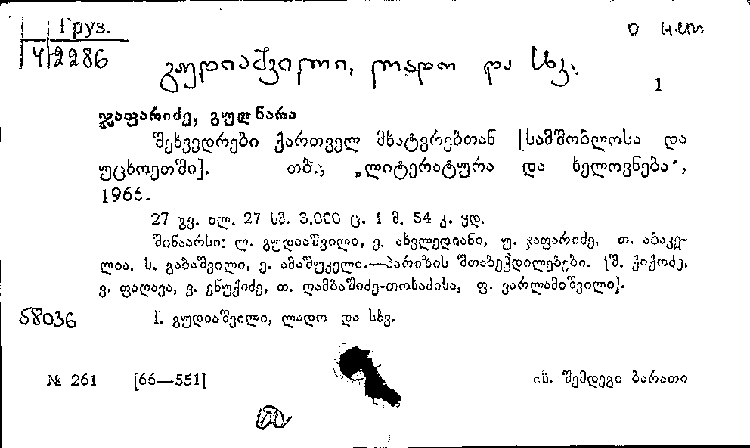 Груз.
4 2286
გუდიაშვილი, ლადო და სხვ.
1
ჯაფარიძე, გულნარა
შეხვედრები ქართველ მხატვრებთან [სამშობლოსა და
უცხოეთში]. თბ., „ლიტერატურა და ხელოვნება“,
1966.
27 გვ. ილ. 27 სმ. 3,000 ც. 1 მ. 54 კ. ყდ.
შინაარსი: ლ. გუდიაშვილი, ე. ახვლედიანი, უ. ჯაფარიძე, თ. აბაკე-
ლია, ს. გაბაშვილი, ე. ამაშუკელი.—პარიზის შთაბეჭდილებები. [მ.
ვ. ფაღავა, ვ. ენუქიძე, თ. ღამბაშიძე-თოხაძისა, ფ. ვარლამიშვილი].
58036
I. გუდიაშვილი, ლადო და სხვ.
№ 261 [66—551] იხ. შემდეგი ბარათი